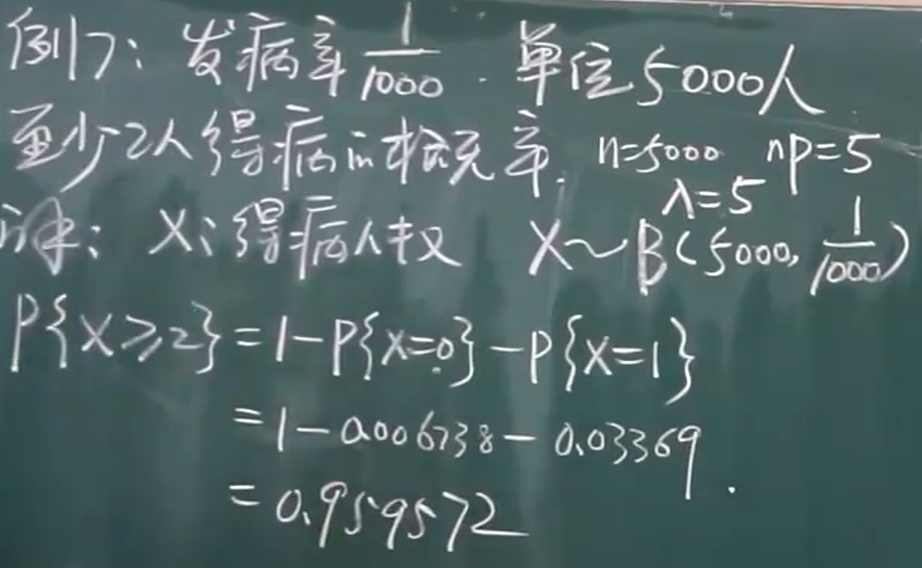 例7: 发病率 1/1000. 单位5000人
至少2人得病的概率. n=5000 np=5
λ=5
解: X: 得病人数 X~B(5000, 1/1000)
P{X≥2}=1-P{X=0}-P{X=1}
=1-0.006738-0.03369
=0.959572.